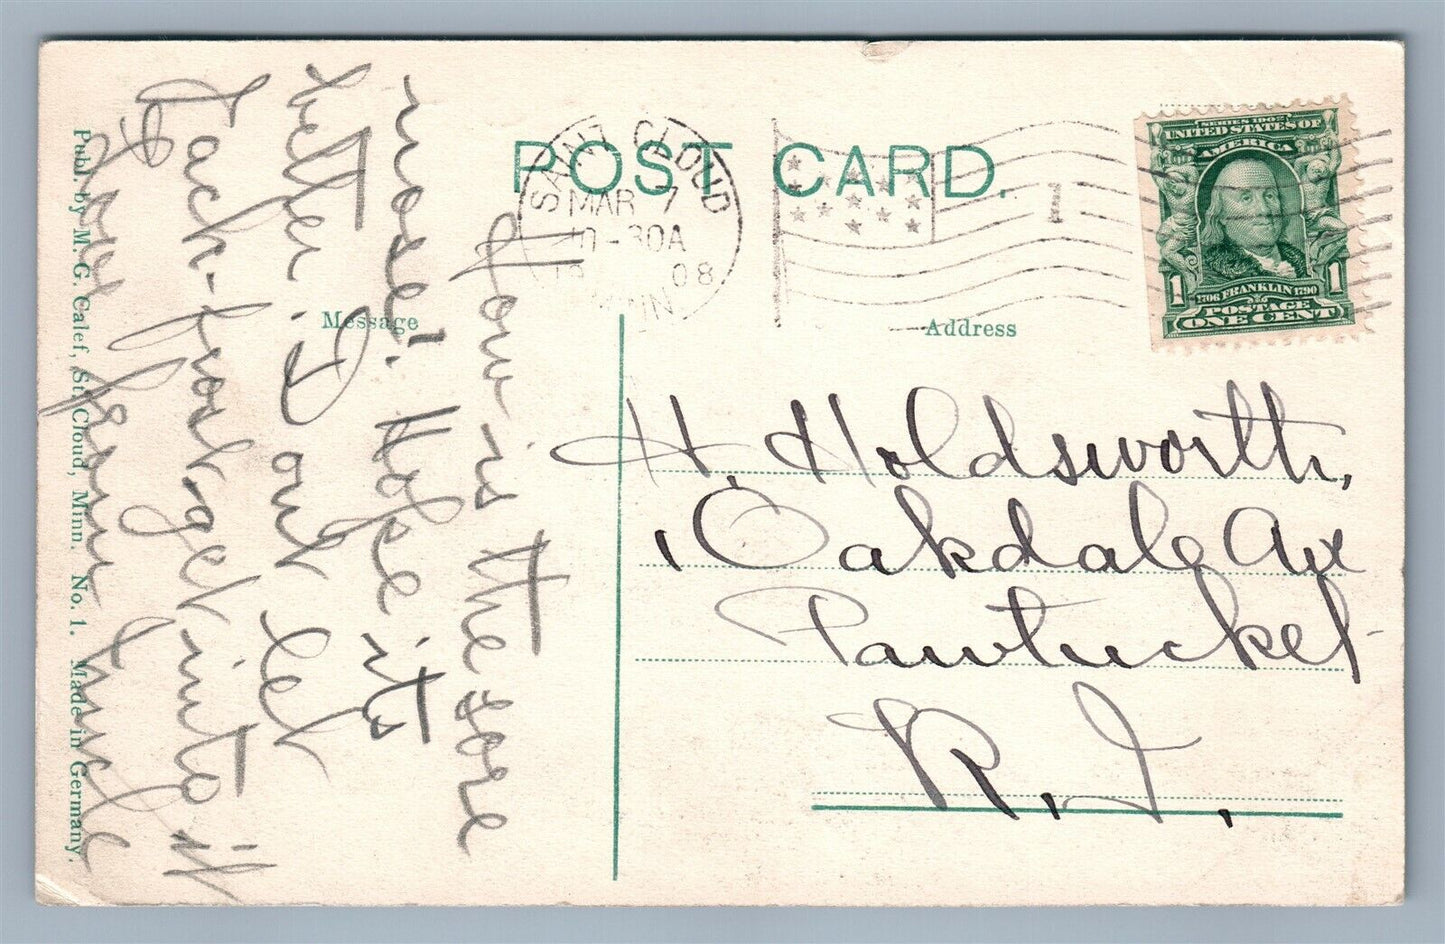 POST CARD.
SAINT CLOUD
MAR 7
10-30A
08
MINN.
1
SERIES 1902
UNITED STATES OF
AMERICA
1706 FRANKLIN 1790
POSTAGE
1 ONE CENT 1
Message
Address
How is the sore
nose? Hope its
better. Dont let
Jack-frost get into it
Your Fran
H. Holdsworth,
Oakdale Av
Pawtucket
R.I.
Publ. by M. G. Calef, St. Cloud, Minn. No. 1. Made in Germany.